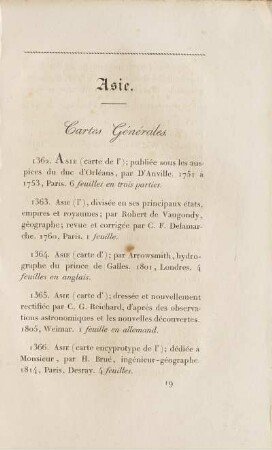 Asie.
Cartes Générales.
1362. ASIE (carte de l'); publiée sous les aus-
pices du duc d'Orléans, par D'Anville. 1751 à
1753, Paris. 6 feuilles en trois parties.
1363. ASIE (l'), divisée en ses principaux états,
empires et royaumes; par Robert de Vaugondy,
géographe; revue et corrigée par C. F. Delamar-
che. 1760, Paris. 1 feuille.
1364. ASIE (carte d'); par Arrowsmith, hydro-
graphe du prince de Galles. 1801, Londres. 4
feuilles en anglais.
1365. ASIE (carte d'); dressée et nouvellement
rectifiée par C. G. Reichard, d'après des observa-
tions astronomiques et les nouvelles découvertes.
1805, Weimar. 1 feuille en allemand.
1366. ASIE (carte encyprotype de l'); dédiée à
Monsieur, par H. Brué, ingénieur-géographe.
1814, Paris, Desray. 4 feuilles.
19